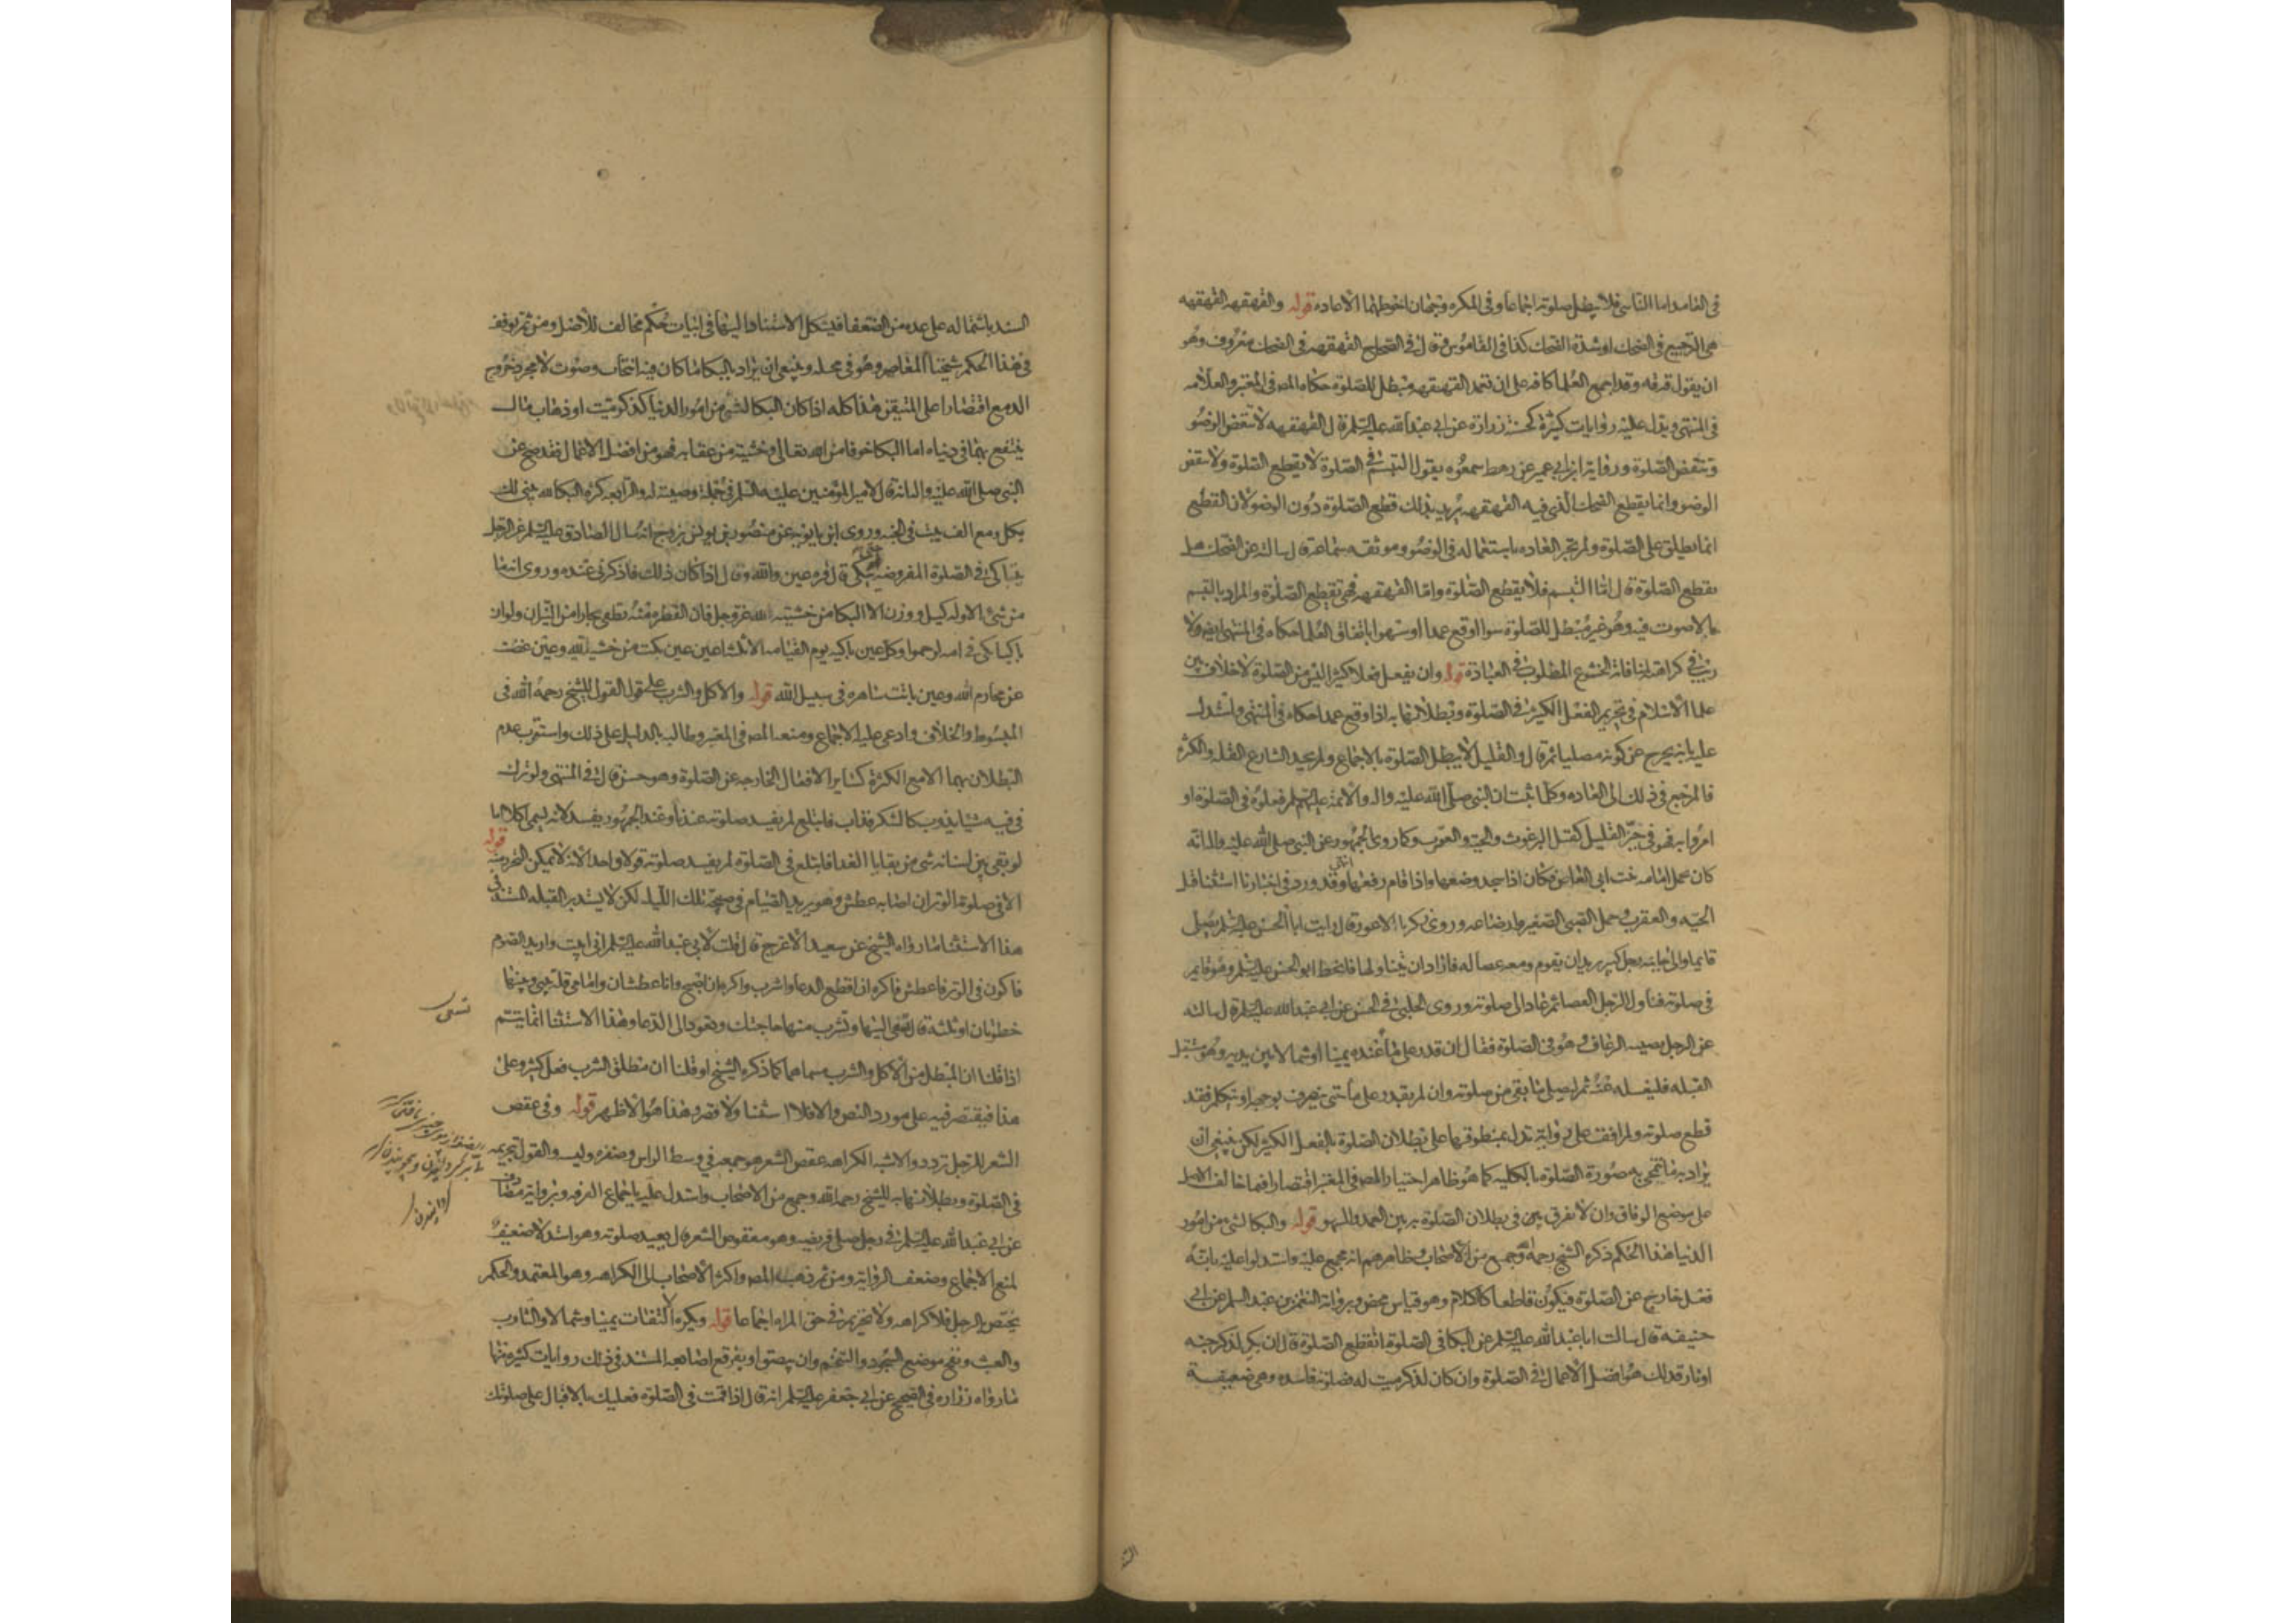 في العامد اما الناسي فلا يبطل صلوته اجماعا وفي المكره وجهان احوطهما الاعادة قوله والقهقهه القهقهه
هي الترجيع في الضحك او شدة الضحك كذا في القاموس وقال في الصحاح القهقهه في الضحك معروف وهو
ان يقول قه قه وقد اجمع العلما كافه على ان تعمد القهقهه مبطل للصلوة حكاه المص في المعتبر والعلامه
في المنتهى ويدل عليه روايات كثيرة كحسنة زرارة عن ابي عبد الله عليه السلم قال القهقهه لا تنقض الوضو
وتنقض الصلوة ورواية ابن ابي عمير عن رهط سمعوه يقول التبسم في الصلوة لا يقطع الصلوة ولا ينقض
الوضو وانما يقطع الضحك الذي فيه القهقهه يريد بذلك قطع الصلوة دون الوضو لان القطع
انما يطلق على الصلوة ولم تجر العاده باستعماله في الوضو وموثقه سماعة قال سالته عن الضحك هل
يقطع الصلوة قال اما التبسم فلا يقطع الصلوة واما القهقهه فهي تقطع الصلوة والمراد بالتبسم
ما لا صوت فيه وهو غير مبطل للصلوة سوا وقع عمدا او سهوا باتفاق العلما حكاه في المنتهى ولا
ريب في كراهته لمنافاته الخشوع المطلوب في العبادة قوله وان يفعل فعلا كثيرا ليس من الصلوة لا خلاف بين
علما الاسلام في تحريم الفعل الكثير في الصلوة وبطلانها به اذا وقع عمدا حكاه في المنتهى واستدل
عليه بانه يخرج عن كونه مصليا ثم قال والقليل لا يبطل الصلوة بالاجماع ولم يحد الشارع القله والكثرة
فالمرجع في ذلك الى العاده وكلما ثبت ان النبي صلى الله عليه واله والائمة عليهم السلم فعلوه في الصلوة او
امروا به فهو في حيز القليل كقتل البرغوث والحية والعقرب وكما روى الجمهور عن النبي صلى الله عليه واله انه
كان يحمل امامه بنت ابي العاص فكان اذا سجد وضعها واذا قام رفعها انتهى وقد ورد في اخبارنا استثنا قتل
الحيه والعقرب وحمل الصبي الصغير وارضاعه وروى زكريا الاعور قال رايت ابا الحسن عليه السلم يصلي
قايما والى جانبه رجل كبير يريد ان يقوم ومعه عصا له فاراد ان يتناولها فانحط ابو الحسن عليه السلم وهو قايم
في صلوته فناول الرجل العصا ثم عاد الى صلوته وروى الحلبي في الحسن عن ابي عبد الله عليه السلم قال سالته
عن الرجل يصيبه الرعاف وهو في الصلوة فقال ان قدر على ما عنده يمينا او شمالا بين يديه وهو مستقبل
القبله فليغسله عنه ثم ليصلي ما بقي من صلوته وان لم يقدر على ما حتى ينصرف بوجهه او يتكلم فقد
قطع صلوته ولم اقف على رواية تدل بمنطوقها على بطلان الصلوة بالفعل الكثير لكن ينبغي ان
يراد به ما تنمحي به صورة الصلوة بالكليه كما هو ظاهر اختيار المص في المعتبر اقتصارا فيما خالف الاصل
على موضع الوفاق وان لا يفرق بين في بطلان الصلوة به بين العمد والسهو قوله والبكا لشي من امور
الدنيا هذا الحكم ذكره الشيخ رحمه الله وجمع من الاصحاب وظاهرهم انه مجمع عليه واستدلوا عليه بانه
فعل خارج عن الصلوة فيكون قاطعا كالكلام وهو قياس محض وبرواية النعمن بن عبد السلم عن ابي
حنيفه قال سالت ابا عبد الله عليه السلم عن البكا في الصلوة ايقطع الصلوة قال ان بكى لذكر جنه
او نار فذلك هو افضل الاعمال في الصلوة وان كان لذكر ميت له فصلوته فاسده وهي ضعيفة
السند باشتماله على عده من الضعفا فيشكل الاستناد اليها في اثبات حكم مخالف للاصل ومن ثم توقف
في هذا الحكم شيخنا المعاصر وهو في محله وينبغي ان يراد بالبكا ما كان فيه انتحاب وصوت لا مجرد خروج
الدمع اقتصارا على المتيقن هذا كله اذا كان البكا لشي من امور الدنيا كذكر ميت او ذهاب مال
ينتفع بهما في دنياه اما البكا خوفا من الله تعالى وخشية من عقابه فهو من افضل الاعمال فقد صح عن
النبي صلى الله عليه واله انه قال لامير المؤمنين عليه السلم في جملة وصيته له والرابعه كثرة البكا لله يبنى لك
بكل دمعه الف بيت في الجنه وروى ابن بابويه عن منصور بن يونس بزرج انه سال الصادق عليه السلم عن الرجل
يتباكى في الصلوة المفروضه حتى يبكي قال قره عين والله وقال اذا كان ذلك فاذكرني عنده وروى انه ما
من شي الا وله كيل ووزن الا البكا من خشيه الله عز وجل فان القطرة منه تطفي بحارا من النيران ولو ان
باكيا بكى في امه لرحموا وكل عين باكيه يوم القيامه الا ثلثه اعين عين بكت من خشيه الله وعين غضت
عن محارم الله وعين باتت ساهره في سبيل الله قوله والاكل والشرب على قول القول للشيخ رحمه الله في
المبسوط والخلاف وادعى عليه الاجماع ومنعه المص في المعتبر وطالبه بالدليل على ذلك واستقرب عدم
البطلان بهما الا مع الكثرة كساير الافعال الخارجه عن الصلوة وهو حسن قال في المنتهى ولو ترك
في فيه شيا يذوب كالسكر فذاب فابتلع لم يفسد صلوته عندنا وعند الجمهور يفسد لانه يسمى اكلا اما
لو بقي بين اسنانه شي من بقايا الغدا فابتلع في الصلوة لم يفسد صلوته قولا واحدا لانه لا يمكن التحرز منه قوله
الا في صلوة الوتر ان اصابه عطش وهو يريد الصيام في صبيحه تلك الليله لكن لا يستدبر القبله المستند في
هذا الاستثنا ما رواه الشيخ عن سعيد الاعرج قال قلت لابي عبد الله عليه السلم اني ابيت واريد الصوم
فاكون في الوتر فاعطش فاكره ان اقطع الدعا واشرب واكره ان اصبح وانا عطشان وامامي قلة بيني وبينها
خطوتان او ثلثة قال تسعى اليها وتشرب منها حاجتك وتعود الى الدعا وهذا الاستثنا انما يتم
اذا قلنا ان المبطل من الاكل والشرب مسماهما كما ذكره الشيخ او قلنا ان مطلق الشرب فعل كثير وعلى
هذا فيقتصر فيه على مورد النص والا فلا استثنا ولا قصر وهذا هو الاظهر قوله وفي عقص
الشعر للرجل تردد والاشبه الكراهه عقص الشعر هو جمعه في وسط الراس وضفره وليه والقول بتحريمه
في الصلوة وبطلانها به للشيخ رحمه الله وجمع من الاصحاب واستدل عليه باجماع الفرقه وبرواية مصادف
عن ابي عبد الله عليه السلم في رجل صلى فريضه وهو معقوص الشعر قال يعيد صلوته وهو استدلال ضعيف
لمنع الاجماع وضعف الرواية ومن ثم ذهب المص واكثر الاصحاب الى الكراهه وهو المعتمد والحكم
يختص بالرجل فلا كراهه ولا تحريم في حق المراه اجماعا قوله ويكره الالتفات يمينا وشمالا والتثاوب
والعبث ونفخ موضع السجود والتنخم وان يبصق او يفرقع اصابعه المستند في ذلك روايات كثيرة منها
ما رواه زراره في الصحيح عن ابي جعفر عليه السلم انه قال اذا قمت في الصلوة فعليك بالاقبال على صلوتك
تسعى